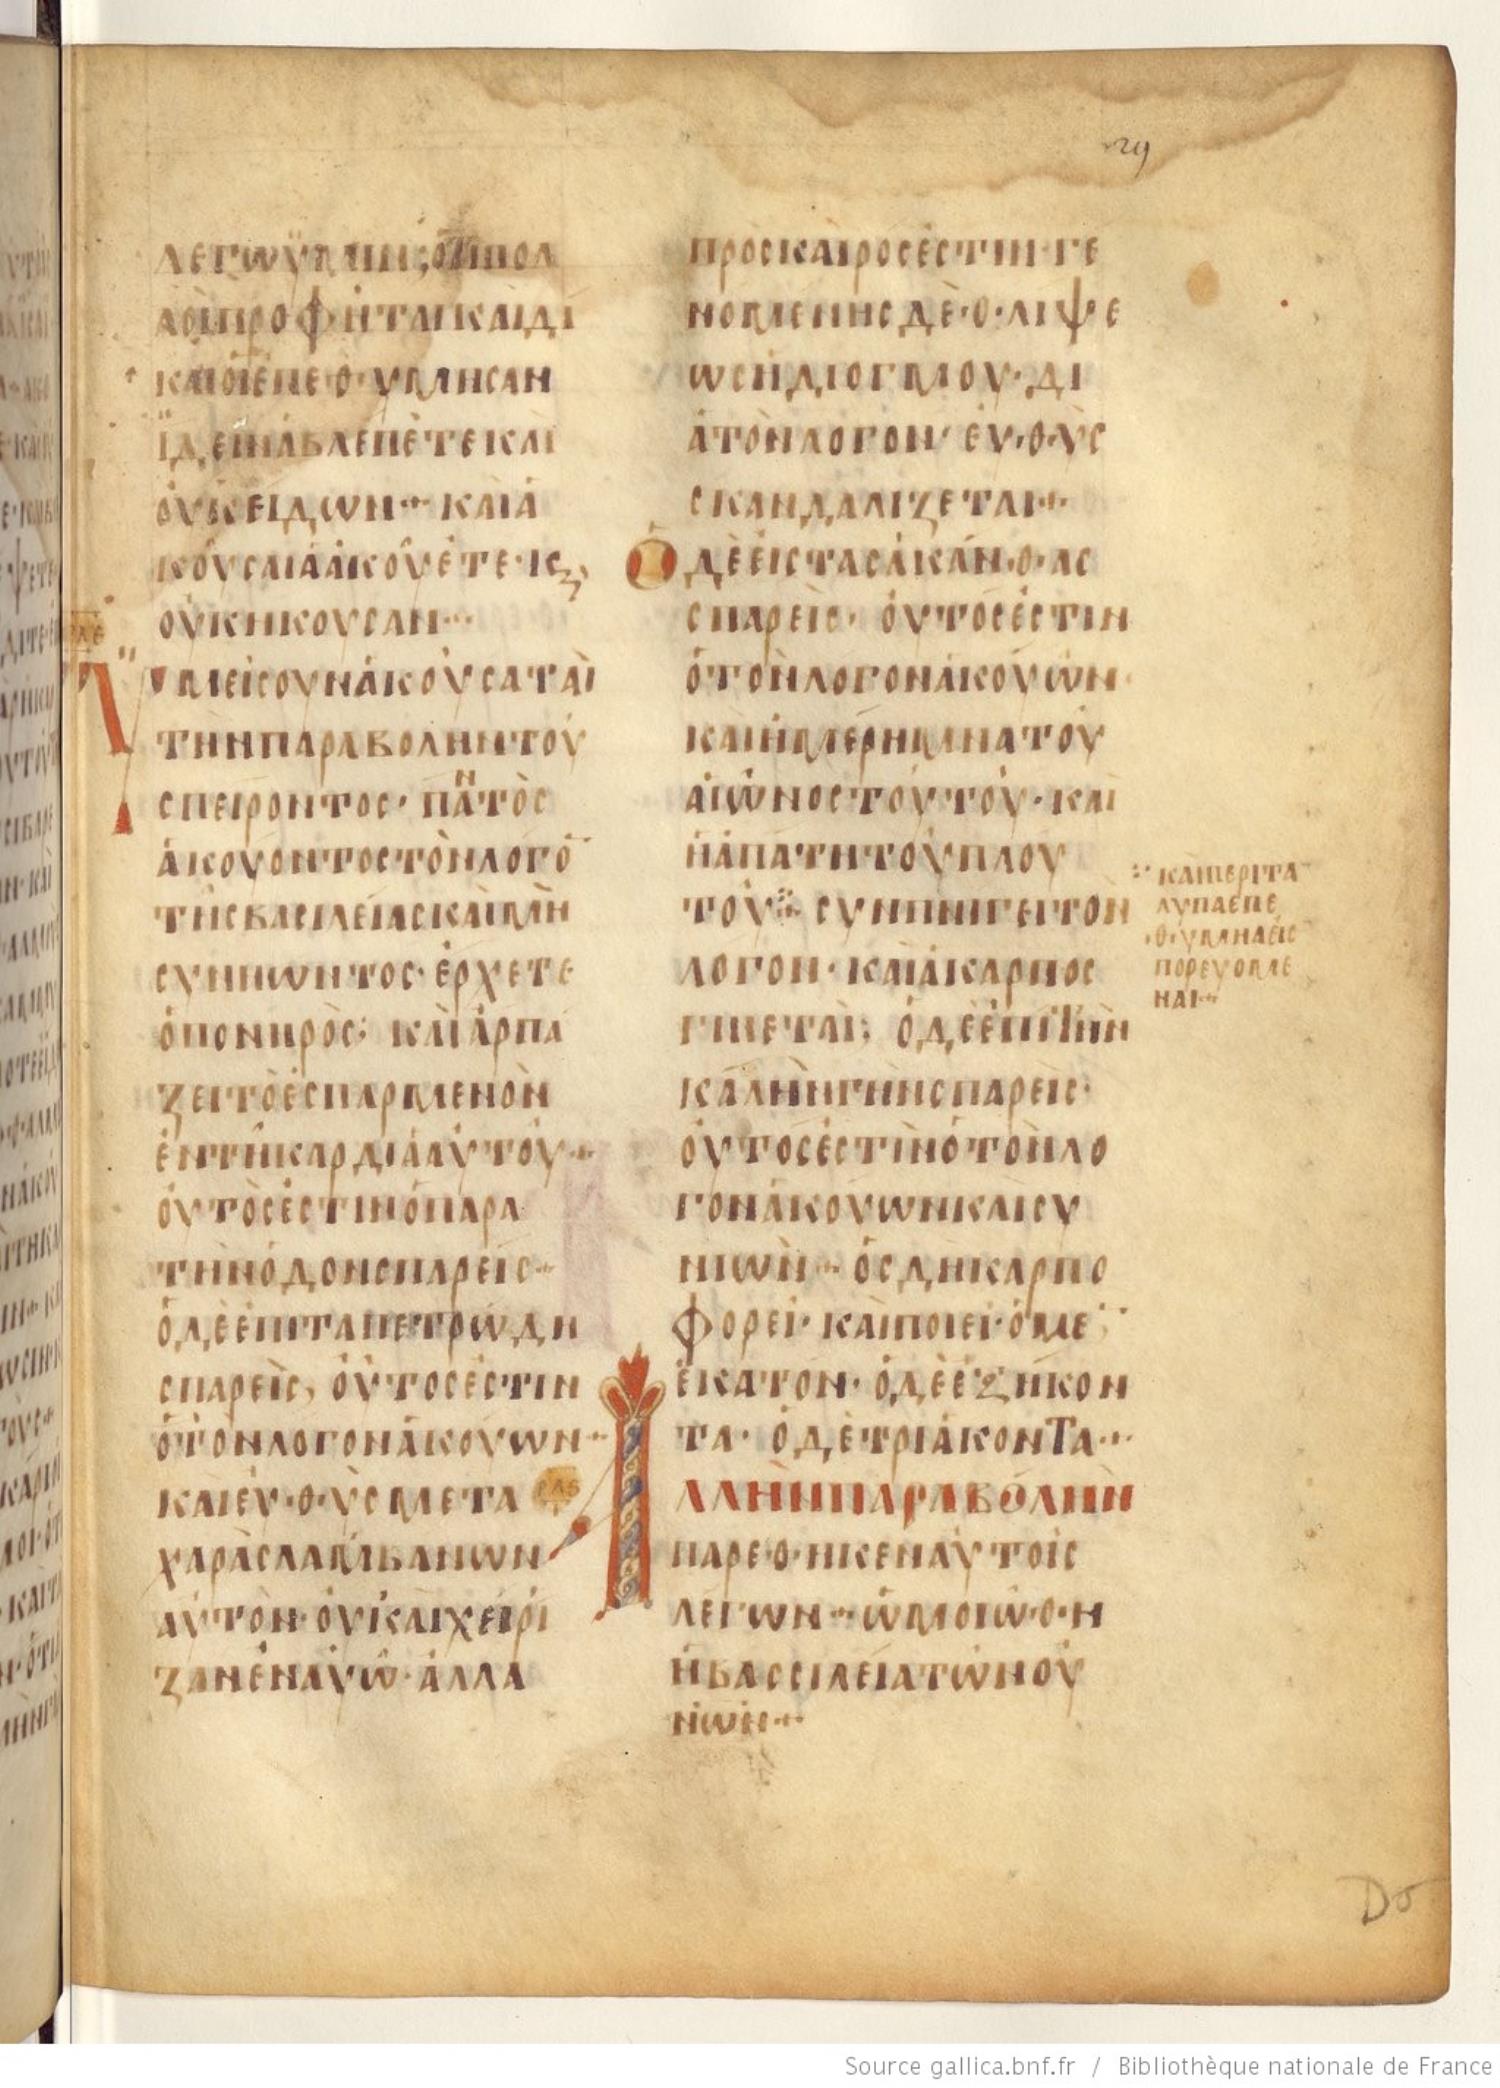 29
ΛΕΓΩΫΜΙΝ· ΟΤΙ ΠΟΛ
ΛΟΙ ΠΡΟΦΗΤΑΙ ΚΑΙ ΔΙ
ΚΑΙΟΙ ΕΠΕΘΥΜΗΣΑΝ
ΪΔΕΙΝ Ἁ ΒΛΕΠΕΤΕ ΚΑΙ
ΟΥΚ ΕΙΔΩΝ·:· ΚΑΙ Ἁ
ΚΟΥΣΑΙ Ἁ ἈΚΟΥΕΤΕ· Κς
ΟΥΚ ΗΚΟΥΣΑΝ·:·
ΫΜΕΙΣ ΟΥΝ ἈΚΟΥΣΑΤΑΙ
ΤΗΝ ΠΑΡΑΒΟΛΗΝ ΤΟΥ
ΣΠΕΙΡΟΝΤΟΣ· ΠΑΝΤΟΣ
ἈΚΟΥΟΝΤΟΣ ΤΟΝ ΛΟΓΟ̅
ΤΗΣ ΒΑΣΙΛΕΙΑΣ ΚΑΙ ΜΗ
ΣΥΝΙΩΝΤΟΣ· ἘΡΧΕΤΕ
Ὁ ΠΟΝΗΡΟΣ· ΚΑΙ ἉΡΠΑ
ΖΕΙ ΤΟ ἘΣΠΑΡΜΕΝΟΝ
ἘΝ ΤΗ ΚΑΡΔΙΑ ΑΥΤΟΥ·:·
ΟΥΤΟΣ ἘΣΤΙΝ Ὁ ΠΑΡΑ
ΤΗΝ ὉΔΟΝ ΣΠΑΡΕΙΣ·:·
Ὁ ΔΕ ἘΠΙ ΤΑ ΠΕΤΡΩΔΗ
ΣΠΑΡΕΙΣ, ΟΥΤΟΣ ἘΣΤΙΝ
Ὁ ΤΟΝ ΛΟΓΟΝ ἈΚΟΥΩΝ·:·
ΚΑΙ ΕΥΘΥΣ ΜΕΤΑ
ΧΑΡΑΣ ΛΑΜΒΑΝΩΝ
ΑΥΤΟΝ· ΟΥΚ ΑΙΧΕΙ ΡΙ
ΖΑΝ ἘΝ ἈΥΩ· ἈΛΛΑ
ΠΡΟΣΚΑΙΡΟΣ ἘΣΤΙΝ· ΓΕ
ΝΟΜΕΝΗΣ ΔΕ ΘΛΙΨΕ
ΩΣ Η ΔΙΟΓΜΟΥ· ΔΙ
Ἀ ΤΟΝ ΛΟΓΟΝ· ΕΥΘΥΣ
ΣΚΑΝΔΑΛΙΖΕΤΑΙ·:·
Ὁ ΔΕ ΕΙΣ ΤΑΣ ἈΚΑΝΘΑΣ
ΣΠΑΡΕΙΣ· ΟΥΤΟΣ ἘΣΤΙΝ
Ὁ ΤΟΝ ΛΟΓΟΝ ἈΚΟΥΩΝ·
ΚΑΙ Η ΜΕΡΗΜΝΑ ΤΟΥ
ΑΙΩΝΟΣ ΤΟΥΤΟΥ· ΚΑΙ
Η ἈΠΑΤΗ ΤΟΥ ΠΛΟΥ
ΤΟΥ ·:· ΣΥΝΠΝΙΓΕΙ ΤΟΝ
ΛΟΓΟΝ· ΚΑΙ ἈΚΑΡΠΟΣ
ΓΙΝΕΤΑΙ· Ὁ ΔΕ ἘΠΙ ΤΗΝ
ΚΑΛΗΝ ΓΗΝ ΣΠΑΡΕΙΣ·
ΟΥΤΟΣ ἘΣΤΙΝ Ὁ ΤΟΝ ΛΟ
ΓΟΝ ἈΚΟΥΩΝ ΚΑΙ ΣΥ
ΝΙΩΝ·:· ὉΣ ΔΗ ΚΑΡΠΟ
ΦΟΡΕΙ· ΚΑΙ ΠΟΙΕΙ· Ὁ ΜΕ̅
ἘΚΑΤΟΝ· Ὁ ΔΕ ἘΞΗΚΟΝ
ΤΑ· Ὁ ΔΕ ΤΡΙΑΚΟΝΤΑ·:·
ΛΛΗΝ ΠΑΡΑΒΟΛΗΝ
ΠΑΡΕΘΗΚΕΝ ΑΥΤΟΙΣ
ΛΕΓΩΝ·:· ὩΜΟΙΩΘΗ
Η ΒΑΣΣΙΛΕΙΑ ΤΩΝ ΟΥ
ΝΩΝ·:·
·:· ΚΑΙ ΠΕΡΙ ΤΑ
ΛΥΠΑ ΕΠΕ
ΘΥΜΗΑ ΕΙΣ
ΠΟΡΕΥΟΜΕ
ΝΑΙ·:·
Source gallica.bnf.fr / Bibliothèque nationale de France